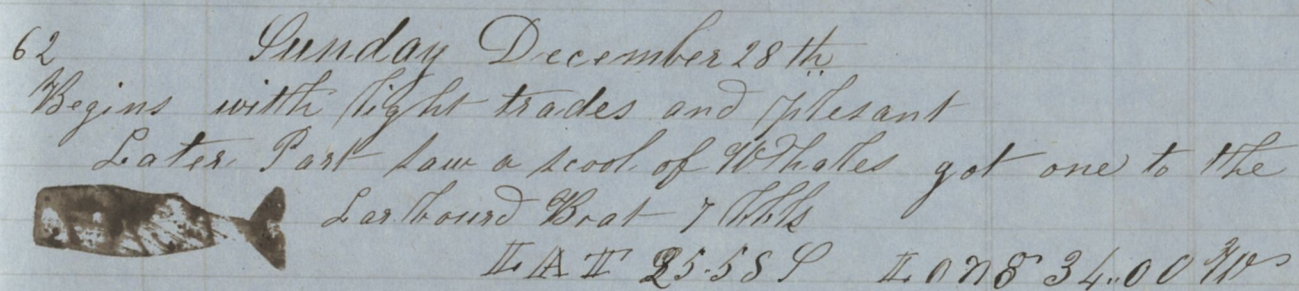 62 Sunday December 28th
Begins with light trades and plesant
Later Part saw a scool of Whales got one to the
Larbourd Boat 7 bbls
LAT 25.58 S LONG 34..00 W